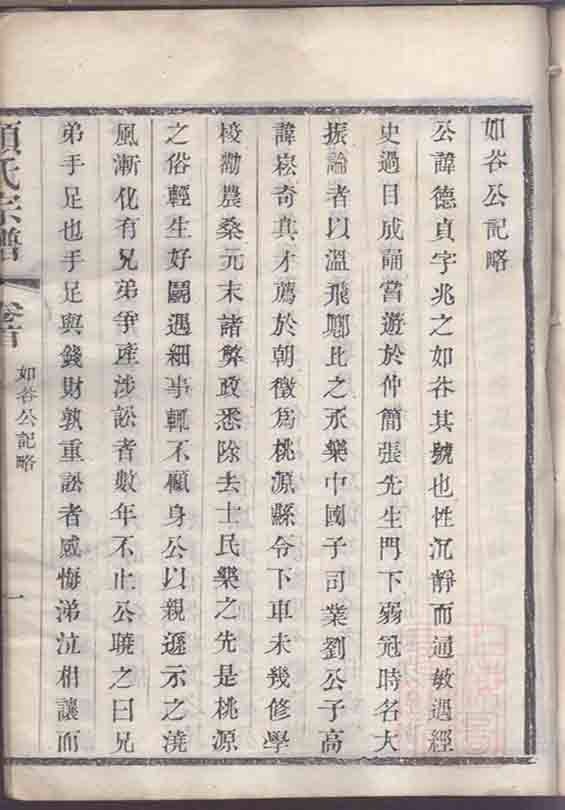 如谷公記略
公諱德貞字兆之如谷其號也性沉靜而通敏過經
史過目成誦嘗遊於仲簡張先生門下弱冠時名大
振論者以溫飛卿比之永樂中國子司業劉公子高
諱崧奇真才薦於朝徵為桃源縣令下車未幾修學
校勸農桑元末諸弊政悉除去士民樂之先是桃源
之俗輕生好鬭遇細事輒不顧身公以親遜示之澆
風漸化有兄弟爭產涉訟者數年不止公曉之曰兄
弟手足也手足與錢財孰重訟者感悔涕泣相讓而
項氏宗譜 卷首 如谷公記略 一